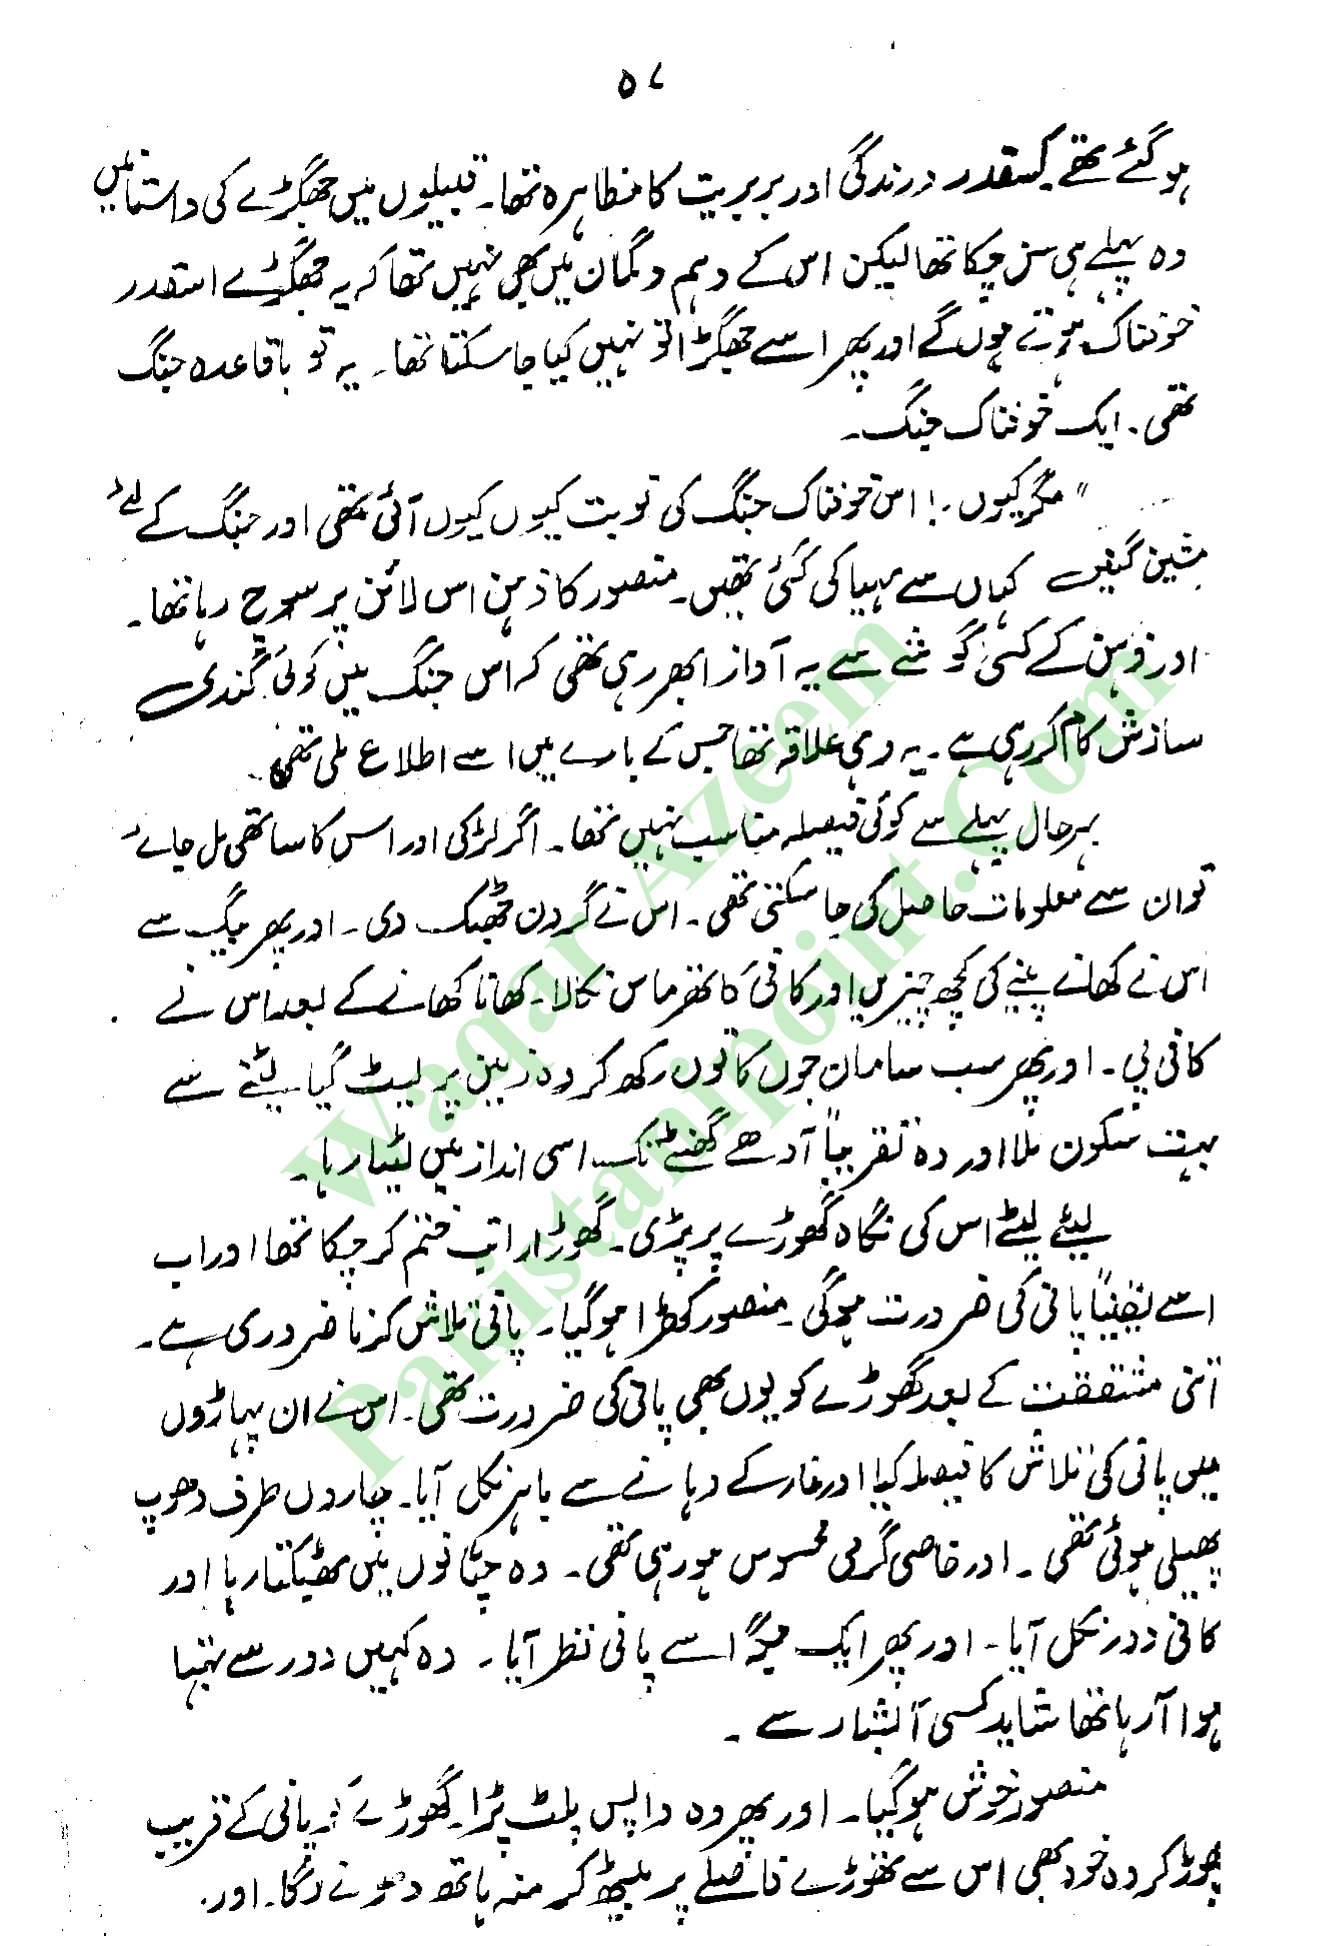 ۵۷
ہوگئے تھے کسقدر درندگی اور بربریت کا مظاہرہ تھا۔ قبیلوں میں جھگڑے کی داستانیں
وہ پہلے ہی سن چکا تھا لیکن اس کے وہم و گمان میں بھی نہیں تھا کہ یہ جھگڑے اسقدر
خوفناک ہوتے ہوں گے اور پھر اسے جھگڑا تو نہیں کیا جا سکتا تھا۔ یہ تو باقاعدہ جنگ
تھی۔ ایک خوفناک جنگ۔
" مگر کیوں۔! اس خوفناک جنگ کی نوبت کیوں کیوں آئی تھی اور جنگ کے لئے
مشین گنیں کہاں سے مہیا کی گئی تھیں۔ منصور کا ذہن اس لائن پر سوچ رہا تھا۔
اور ذہن کے کسی گوشے سے یہ آواز ابھر رہی تھی کہ اس جنگ میں کوئی گندی
سازش کام کر رہی ہے۔ یہ وہی علاقہ تھا جس کے بارے میں اسے اطلاع ملی تھی۔
بہرحال پہلے سے کوئی فیصلہ مناسب نہیں تھا۔ اگر لڑکی اور اس کا ساتھی مل جائے
تو ان سے معلومات حاصل کی جا سکتی تھی۔ اس نے گردن جھٹک دی۔ اور پھر بیگ سے
اس نے کھانے پینے کی کچھ چیزیں اور کافی کا تھرماس نکالا۔ کھانا کھانے کے بعد اس نے
کافی پی۔ اور پھر سب سامان جوں کا توں رکھ کر وہ زمین پر لیٹ گیا۔ لیٹنے سے
بہت سکون ملا اور وہ تقریباً آدھے گھنٹے تک اسی انداز میں لیٹا رہا۔
لیٹے لیٹے اس کی نگاہ گھوڑے پر پڑی۔ گھوڑا راتب ختم کر چکا تھا اور اب
اسے یقیناً پانی کی ضرورت ہوگی۔ منصور کھڑا ہوگیا۔ پانی تلاش کرنا ضروری ہے۔
اتنی مشقت کے بعد گھوڑے کو یوں بھی پانی کی ضرورت تھی۔ اس نے ان پہاڑوں
میں پانی کی تلاش کا فیصلہ کیا اور غار کے دہانے سے باہر نکل آیا۔ چاروں طرف دھوپ
پھیلی ہوئی تھی۔ اور خاصی گرمی محسوس ہو رہی تھی۔ وہ چٹانوں میں بھٹکتا رہا اور
کافی دور نکل آیا۔ اور پھر ایک جگہ اسے پانی نظر آیا۔ وہ کہیں دور سے بہتا
ہوا آ رہا تھا شاید کسی آبشار سے۔
منصور خوش ہوگیا۔ اور پھر وہ واپس پلٹ پڑا۔ گھوڑے کو پانی کے قریب
چھوڑ کر وہ خود بھی اس سے تھوڑے فاصلے پر بیٹھ کر منہ ہاتھ دھونے لگا۔ اور
Waqar Azeem
Pakistanipoint.Com